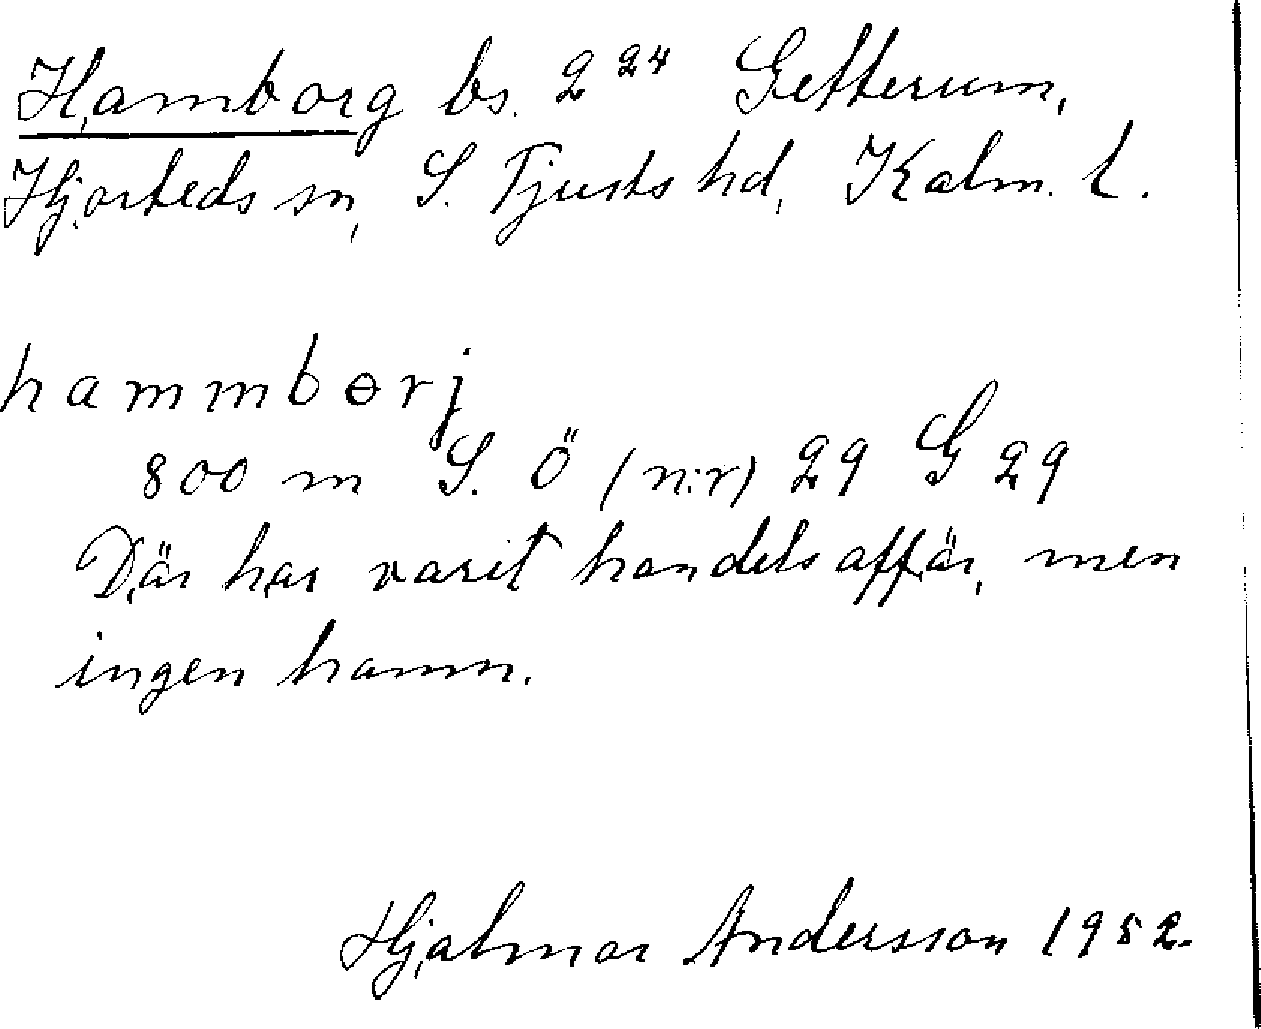 Hamborg bs. 2²⁴ Gefterum,
Hjorteds sn, S. Tjusts hd, Kalm. l.
hammbɵrj
800 m S. Ö (n:r) 29 G 29
Där har varit handelsaffär, men
ingen hamn.
Hjalmar Andersson 1952.